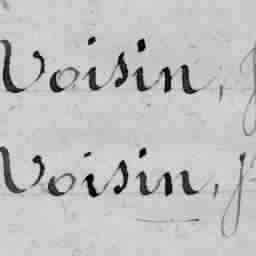 Voisin,
Voisin,